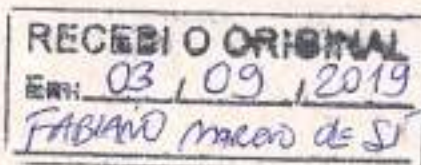 RECEBI O ORIGINAL
Em: 03 / 09 / 2019
FABIANO MARCIO de SÁ